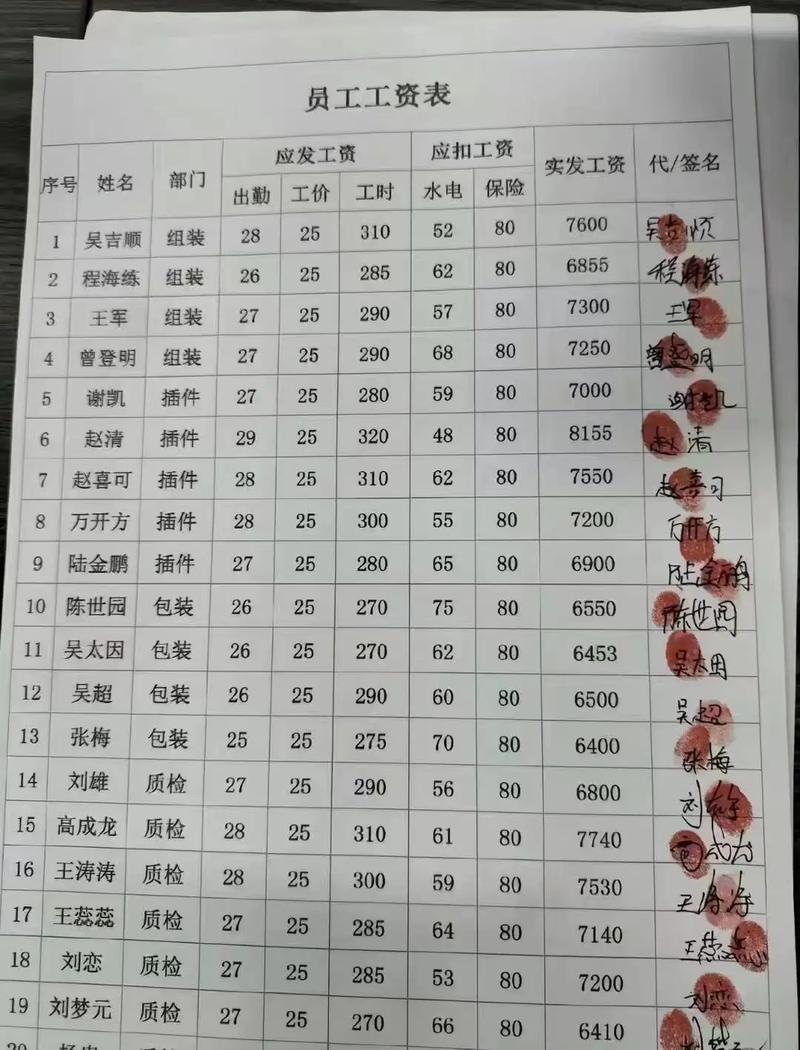 员工工资表
序号 姓名 部门 应发工资 应扣工资 实发工资 代/签名
出勤 工价 工时 水电 保险
1 吴吉顺 组装 28 25 310 52 80 7600 吴吉顺
2 程海练 组装 26 25 285 62 80 6855 程海练
3 王军 组装 27 25 290 57 80 7300 王军
4 曾登明 组装 27 25 290 68 80 7250 曾登明
5 谢凯 插件 27 25 280 59 80 7000 谢凯
6 赵清 插件 29 25 320 48 80 8155 赵清
7 赵喜可 插件 28 25 310 62 80 7550 赵喜可
8 万开方 插件 28 25 300 55 80 7200 万开方
9 陆金鹏 插件 27 25 280 65 80 6900 陆金鹏
10 陈世园 包装 26 25 270 75 80 6550 陈世园
11 吴太因 包装 26 25 270 62 80 6453 吴太因
12 吴超 包装 26 25 290 60 80 6500 吴超
13 张梅 包装 25 25 275 70 80 6400 张梅
14 刘雄 质检 27 25 290 56 80 6800 刘雄
15 高成龙 质检 28 25 310 61 80 7740 高成龙
16 王涛涛 质检 28 25 300 59 80 7530 王涛涛
17 王蕊蕊 质检 27 25 285 64 80 7140 王蕊蕊
18 刘恋 质检 27 25 285 53 80 7200 刘恋
19 刘梦元 质检 27 25 270 66 80 6410